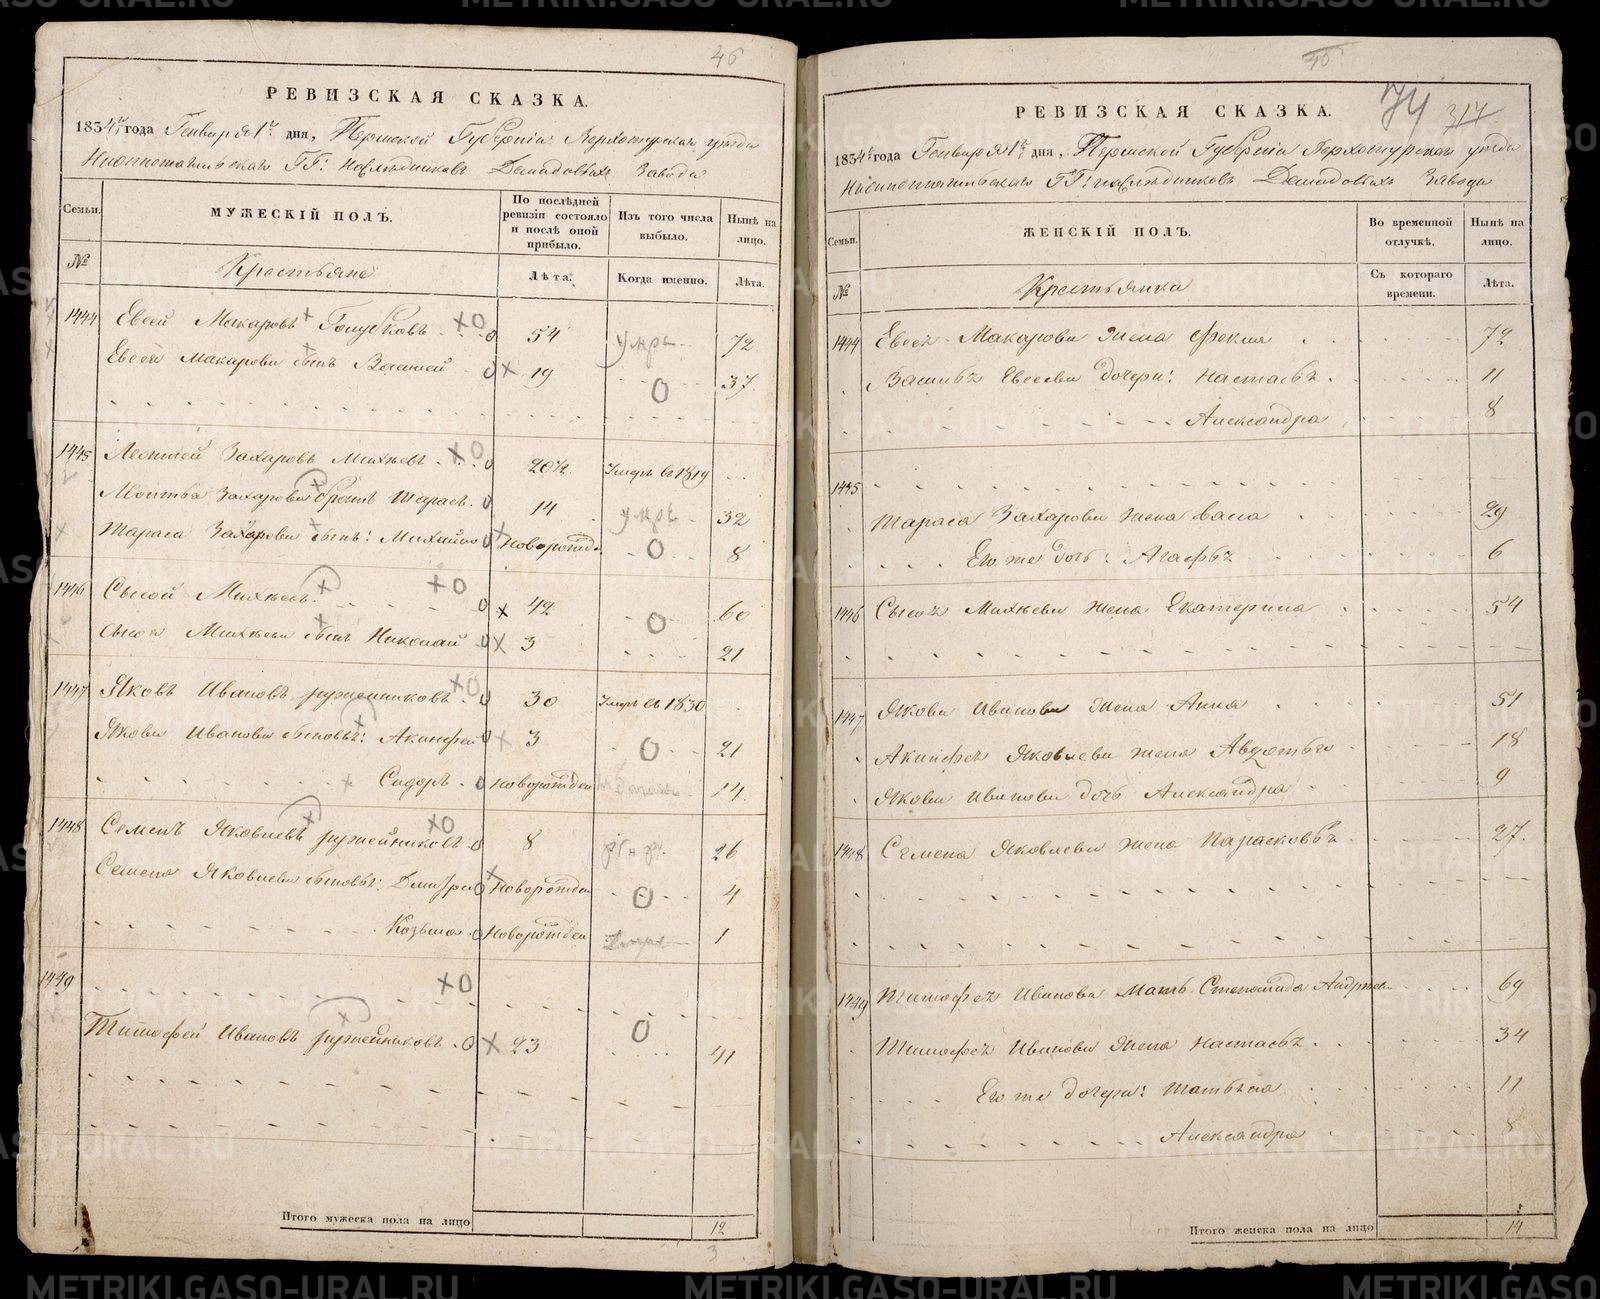 46
РЕВИЗСКАЯ СКАЗКА.
1834го года Генваря 1го дня, Пермской Губерніи Верхотурскаго уѣзда
Нижнетагильскаго ГГ: наслѣдниковъ Демидовыхъ Завода
Семьи.
МУЖЕСКІЙ ПОЛЪ.
По послѣдней ревизіи состояло и послѣ оной прибыло.
Изъ того числа выбыло.
Нынѣ на лицо.
№
Крестьяне
Лѣта.
Когда именно.
Лѣта.
1444 Евсей Макаровъ Голубковъ 54 умръ 72
Евсея Макарова сынъ Василей 19 0 37
1445 Захаровъ Михѣевъ 20½ Умеръ въ 1819
Захарова братъ Тарасъ 14 умръ 32
Тараса Захарова сынъ: Михайло Новорожден 0 8
1446 Сысой Михѣевъ 42 0 60
Сысоя Михѣева сынъ Николай 3 21
1447 Яковъ Ивановъ ружейниковъ 30 Умеръ въ 1830
Якова Иванова сыновья: Акинфей 3 0 21
Сидоръ Новорожден 14
1448 Семенъ Яковлевъ ружейниковъ 8 26
Семена Яковлева сыновья: Дмитрей Новорожден 0 4
Козьма Новорожден 1
1449
Тимофей Ивановъ ружейниковъ 23 0 41
Итого мужеска пола на лицо 12
3
74 317
РЕВИЗСКАЯ СКАЗКА.
1834го года Генваря 1го дня, Пермской Губерніи Верхотурскаго уѣзда
Нижнетагильскаго ГГ: наслѣдниковъ Демидовыхъ Завода
Семьи.
ЖЕНСКІЙ ПОЛЪ.
Во временной отлучкѣ.
Нынѣ на лицо.
№
Крестьянки
Съ котораго времени.
Лѣта.
1444 Евсея Макарова жена Фекла 72
Василья Евсеева дочери: Настасья 11
Александра 8
1445
Тараса Захарова жена Васса 29
Его же дочь: Агафья 6
1446 Сысоя Михѣева жена Екатерина 54
1447 Якова Иванова жена Анна 51
Акинфея Яковлева жена Авдотья 18
Якова Иванова дочь Александра 9
1448 Семена Яковлева жена Парасковья 27
1449 Тимофея Иванова Мать Степанида Андреева 69
Тимофея Иванова жена Настасья 34
Его же дочери: Татьяна 11
Александра 8
Итого женска пола на лицо 14
METRIKI.GASO-URAL.RU